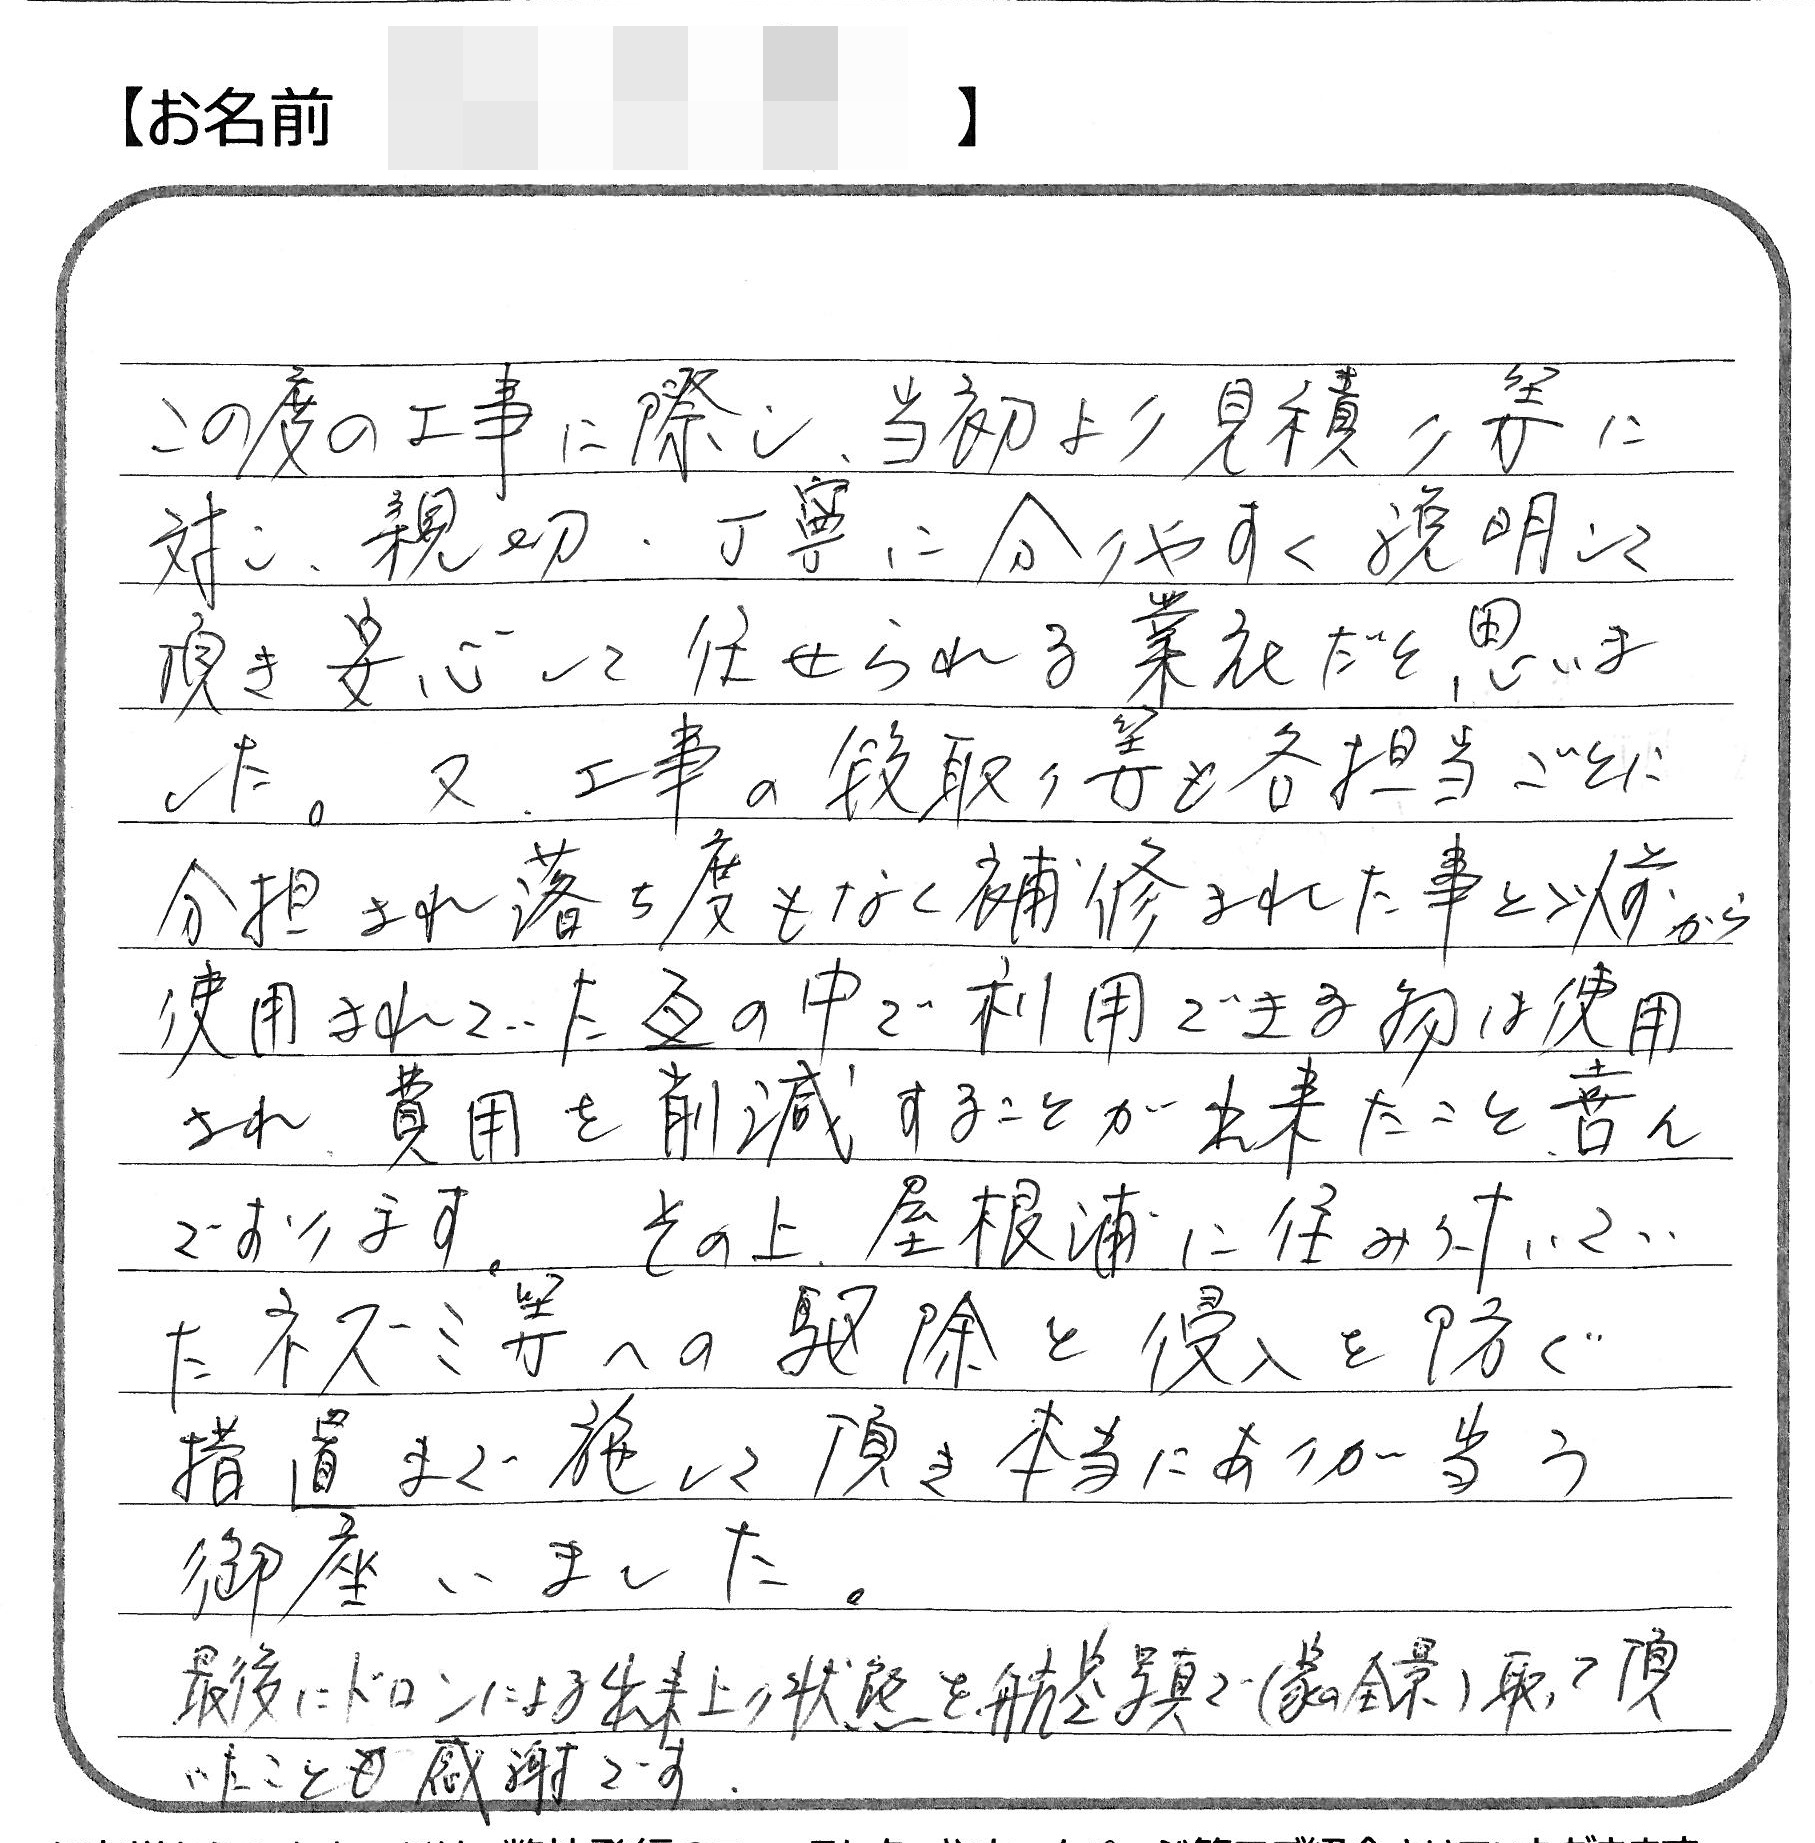 【お名前 】
この度の工事に際し、当初より見積り等に
対し、親切・丁寧に分りやすく説明して
頂き安心して任せられる業社だと思いま
した。又、工事の段取り等も各担当ごとに
分担され落ち度もなく補修された事と以前から
使用されていた瓦の中で利用できる物は使用
され、費用を削減することが出来たこと喜ん
でおります。その上、屋根浦に住み付いてい
たネズミ等への駆除と侵入を防ぐ
措置まで施して頂き本当にありが当う
御座いました。
最後にドロンによる出来上り状態を航空写真で(家の全景)取って頂
いたことも感謝です.